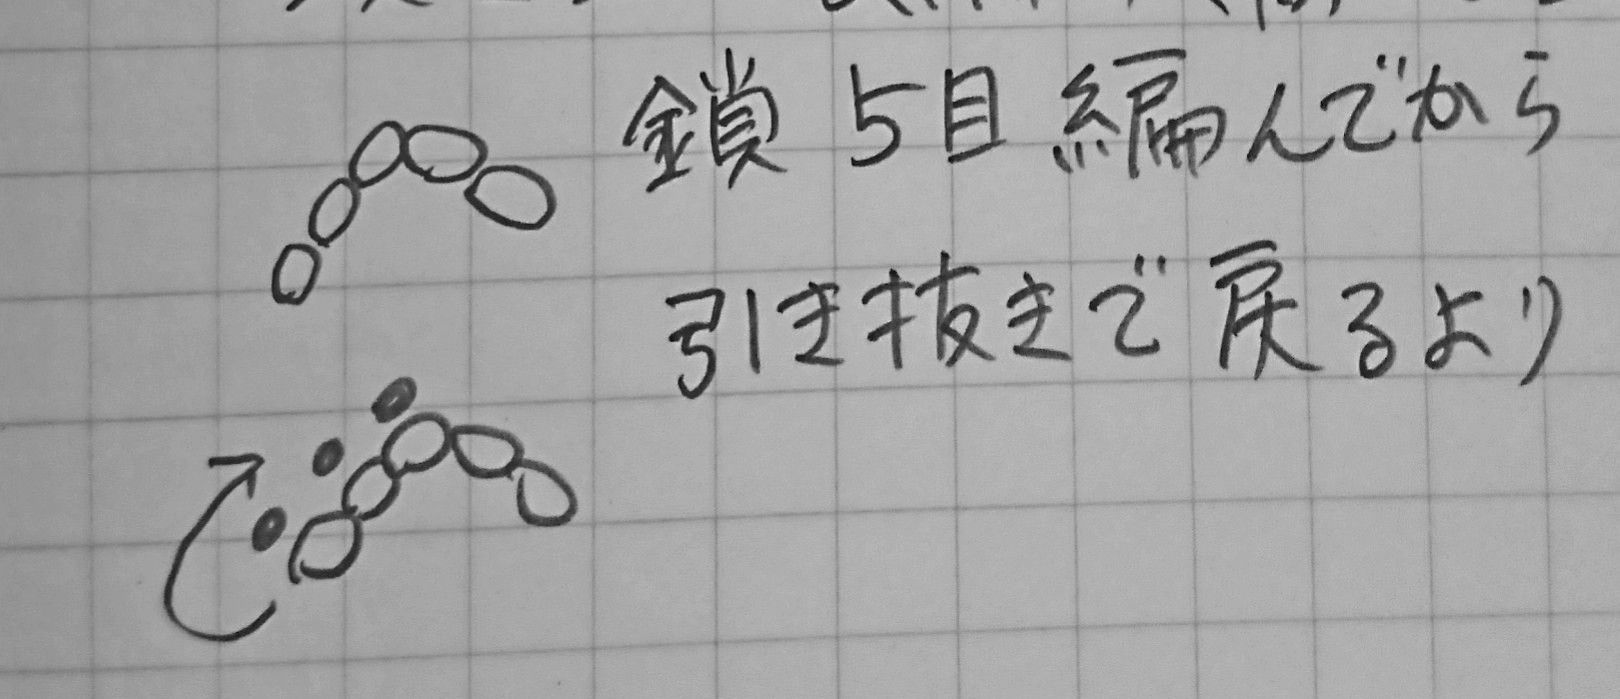 鎖5目編んでから
引き抜きで戻るより